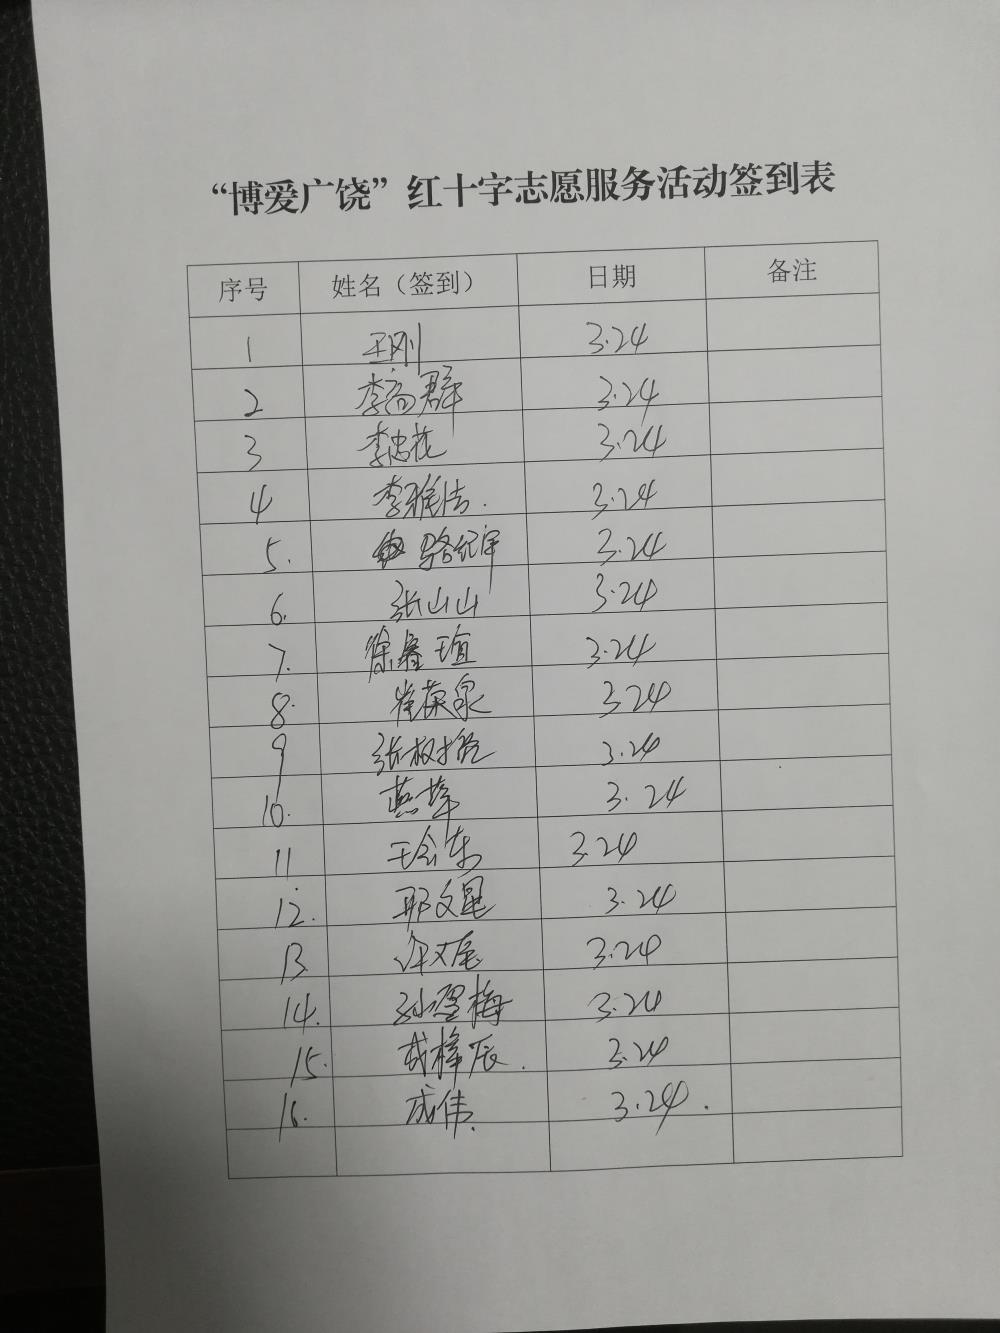 “博爱广饶”红十字志愿服务活动签到表
序号 姓名（签到） 日期 备注
1 王刚 3.24
2 李高群 3.24
3 李忠花 3.24
4 李雅洁. 3.24
5. 骆纪宇 3.24
6. 张山山 3.24
7. 徐鑫瑄 3.24
8. 崔荣泉 3.24
9 张 3.24
10. 燕华 3.24
11 王会东 3.24
12. 耶文星 3.24
13 许文尾 3.24
14. 孙翠梅 3.24
15. 成梓辰. 3.24
16. 成伟. 3.24.